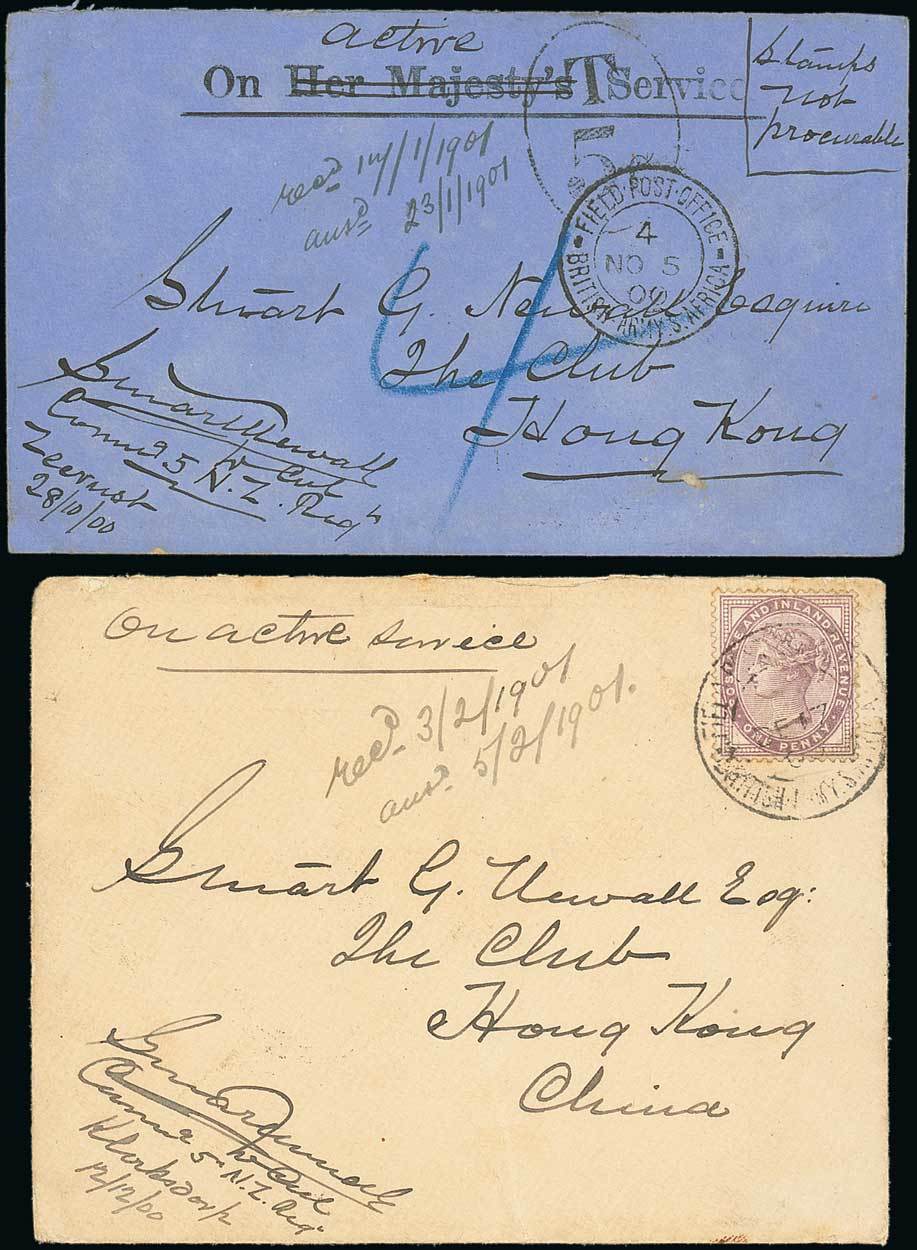 active
On Her Majesty's Service
T
5
Stamps
not
procurable
recd 14/1/1901
ansd 23/1/1901
FIELD·POST·OFFICE
BRITISH ARMY S. AFRICA
4
NO 5
00
Stuart G. Newall Esquire
The Club
Hong Kong
Stuart Newall
Lt Col
Commdg 5 N.Z. Regt
Zeerust
28/10/00
On active service
POSTAGE AND INLAND REVENUE
ONE PENNY
recd 3/2/1901
ansd 5/2/1901.
Stuart G. Newall Esq:
The Club
Hong Kong
China
Stuart Newall
Lt Col
5 N.Z. Regt
Klerksdorp
12/12/00